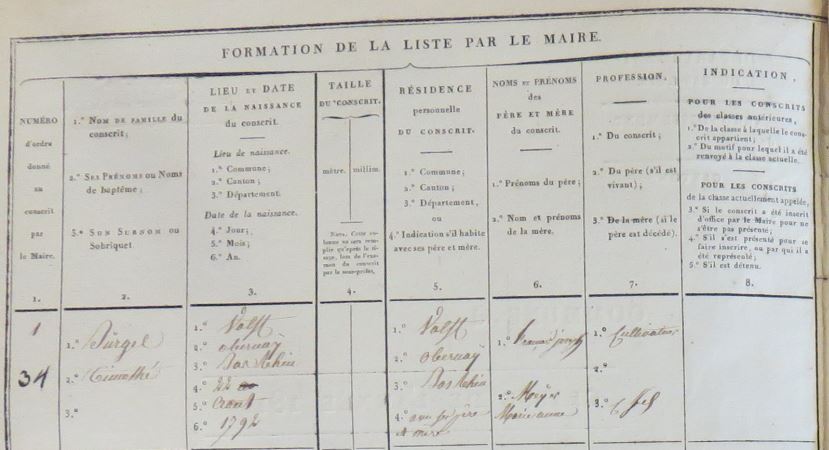 FORMATION DE LA LISTE PAR LE MAIRE.
NUMÉRO
d'ordre
donné
au
conscrit
par
le Maire.
1.
1.° NOM DE FAMILLE du
conscrit;
2.° SES PRÉNOMS OU Noms
de baptême;
3.° SON SURNOM OU
Sobriquet
2.
LIEU ET DATE
DE LA NAISSANCE
du conscrit.
Lieu de naissance.
1.° Commune;
2.° Canton;
3.° Département.
Date de la naissance.
4.° Jour;
5.° Mois;
6.° An.
3.
TAILLE
DU CONSCRIT.
mètre. millim.
NOTA. Cette co-
lonne ne sera rem-
plie qu'après le ti-
rage, lors de l'exa-
men du conscrit
par le sous-préfet.
4.
RÉSIDENCE
personnelle
DU CONSCRIT.
1.° Commune;
2.° Canton;
3.° Département,
ou
4.° Indication s'il habite
avec ses père et mère.
5.
NOMS ET PRÉNOMS
des
PÈRE ET MÈRE
du conscrit.
1.° Prénoms du père;
2.° Nom et prénoms
de la mère.
6.
PROFESSION,
1.° Du conscrit;
2.° Du père (s'il est
vivant);
3.° De la mère (si le
père est décédé).
7.
INDICATION,
POUR LES CONSCRITS
des classes antérieures,
1.° De la classe à laquelle le cons-
crit appartient;
2.° Du motif pour lequel il a été
renvoyé à la classe actuelle.
POUR LES CONSCRITS
de la classe actuellement appelée,
3.° Si le conscrit a été inscrit
d'office par le Maire pour ne
s'être pas présenté;
4.° S'il s'est présenté pour se
faire inscrire, ou par qui il a
été représenté;
5.° S'il est détenu.
8.
1
34
1.° Bürgel
2.° Timothé
3.°
1.° Valff
2.° obernay
3.° Bas Rhin
4.° 22
5.° Aout
6.° 1792
1.° Valff
2.° obernay
3.° Bas Rhin
4.° avec ses père
et mere
1.° joseph
2.° Meyer
Marie anne
1.° Cultivateur
2.°
3.°